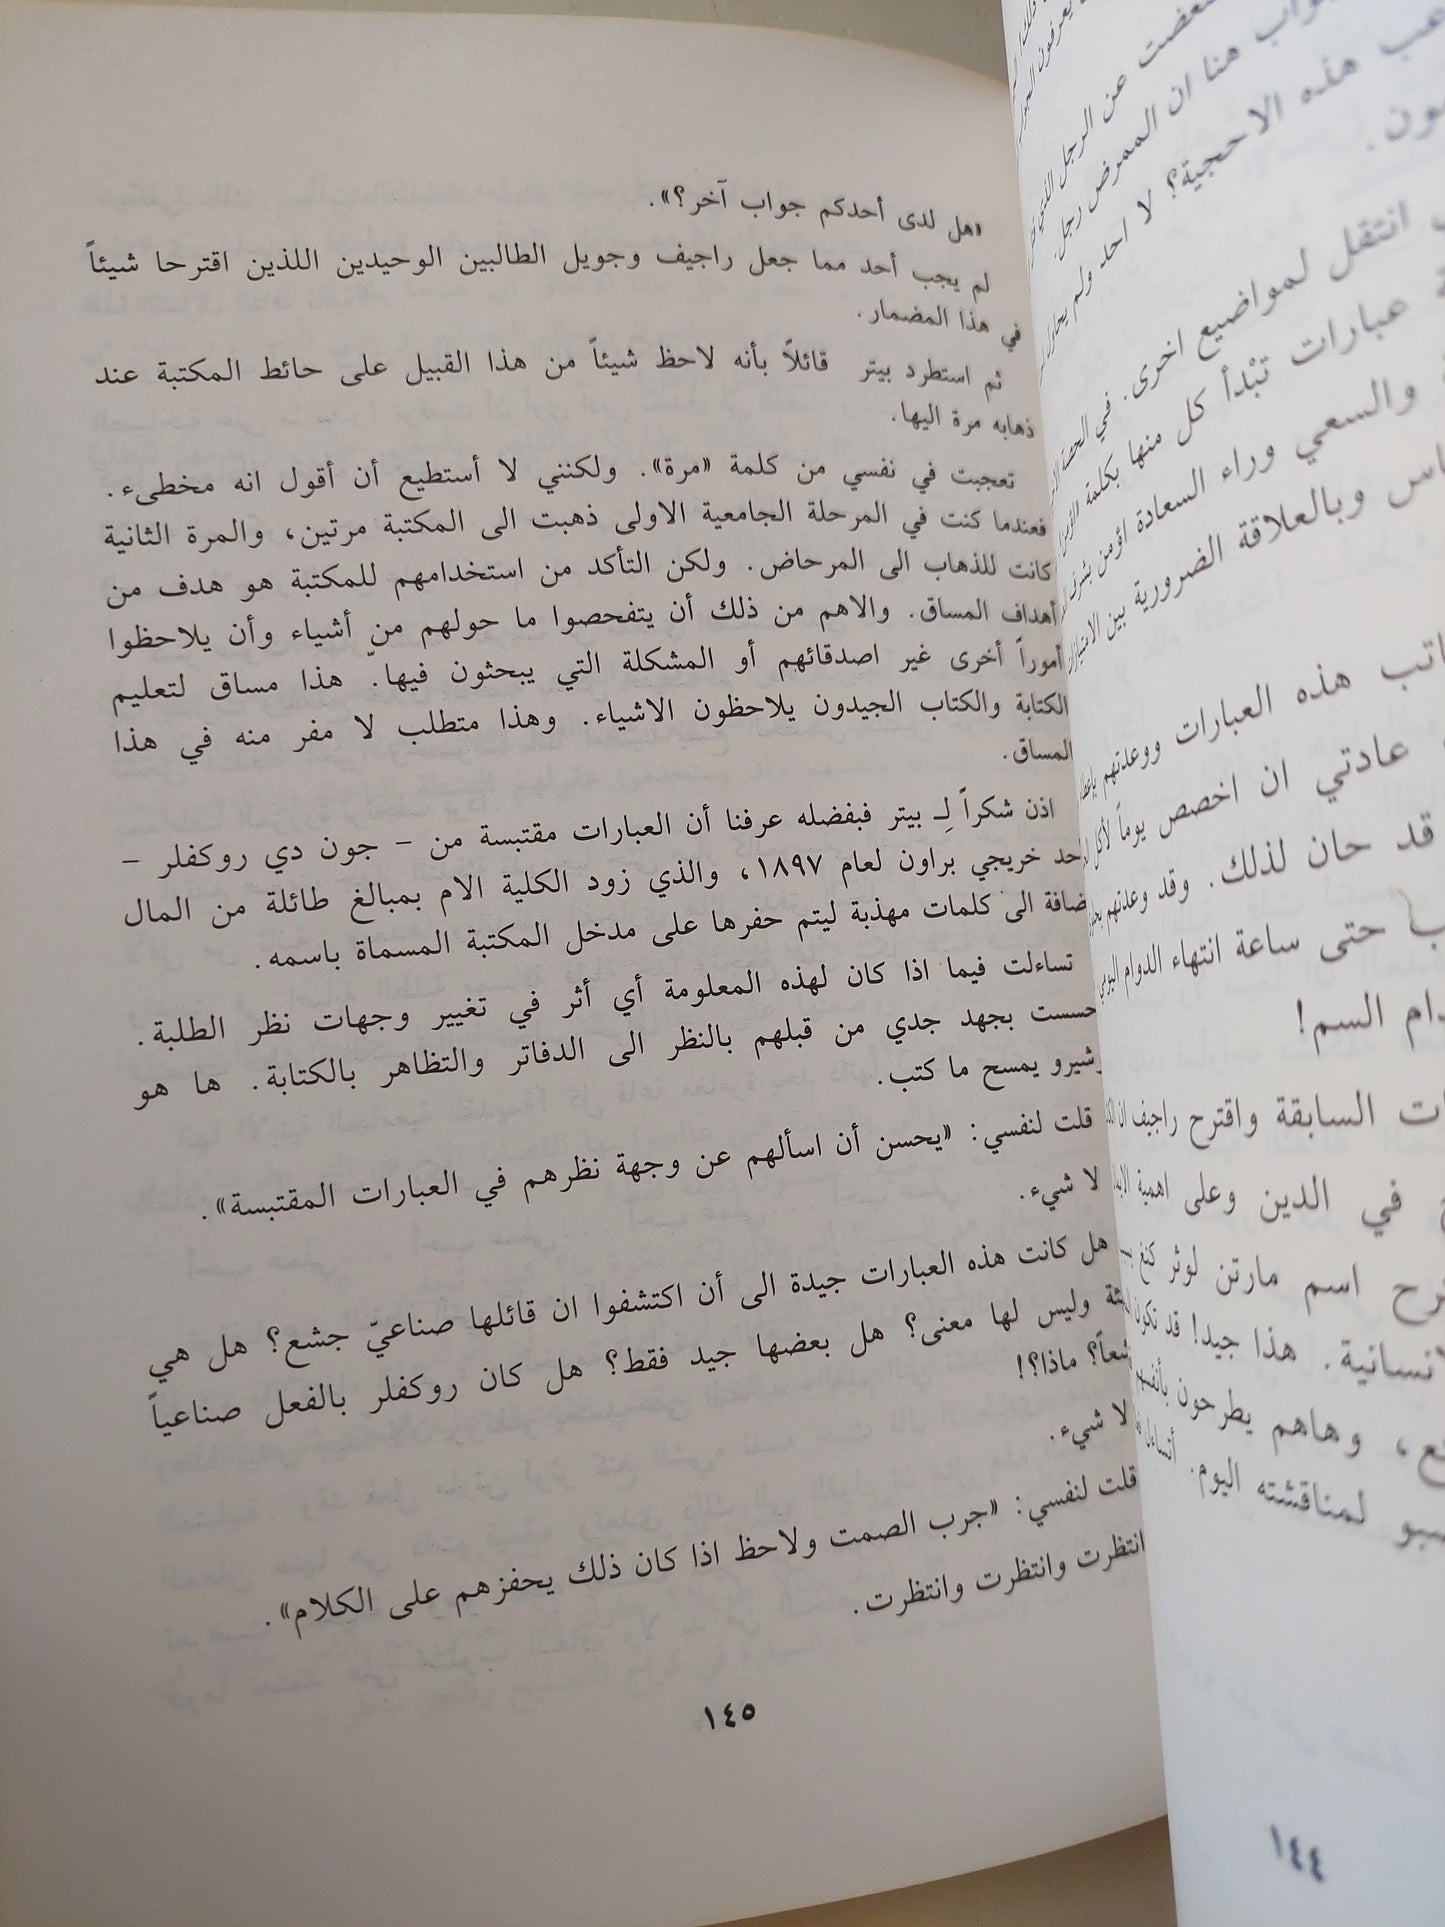 «هل لدى أحدكم جواب آخر؟».
لم يجب أحد مما جعل راجيف وجويل الطالبين الوحيدين اللذين اقترحا شيئاً
في هذا المضمار.
ثم استطرد بيتر قائلاً بأنه لاحظ شيئاً من هذا القبيل على حائط المكتبة عند
ذهابه مرة اليها.
تعجبت في نفسي من كلمة «مرة». ولكنني لا أستطيع أن أقول انه مخطىء.
فعندما كنت في المرحلة الجامعية الاولى ذهبت الى المكتبة مرتين، والمرة الثانية
كانت للذهاب الى المرحاض. ولكن التأكد من استخدامهم للمكتبة هو هدف من
أهداف المساق. والاهم من ذلك أن يتفحصوا ما حولهم من أشياء وأن يلاحظوا
أموراً أخرى غير اصدقائهم أو المشكلة التي يبحثون فيها. هذا مساق لتعليم
الكتابة والكتاب الجيدون يلاحظون الاشياء. وهذا متطلب لا مفر منه في هذا
المساق.
اذن شكراً لِـ بيتر فبفضله عرفنا أن العبارات مقتبسة من - جون دي روكفلر -
حد خريجي براون لعام ١٨٩٧، والذي زود الكلية الام بمبالغ طائلة من المال
ضافة الى كلمات مهذبة ليتم حفرها على مدخل المكتبة المسماة باسمه.
تساءلت فيما اذا كان لهذه المعلومة أي أثر في تغيير وجهات نظر الطلبة.
حسست بجهد جدي من قبلهم بالنظر الى الدفاتر والتظاهر بالكتابة. ها هو
شيرو يمسح ما كتب.
قلت لنفسي: «يحسن أن اسألهم عن وجهة نظرهم في العبارات المقتبسة».
لا شيء.
هل كانت هذه العبارات جيدة الى أن اكتشفوا ان قائلها صناعيّ جشع؟ هل هي
وليس لها معنى؟ هل بعضها جيد فقط؟ هل كان روكفلر بالفعل صناعياً
شعاً؟ ماذا؟!
لا شيء.
قلت لنفسي: «جرب الصمت ولاحظ اذا كان ذلك يحفزهم على الكلام».
انتظرت وانتظرت وانتظرت.
١٤٥
عن الرجل
هنا ان الممرض رجل.
هذه الاحجية؟ لا احد ولم
انتقل لمواضيع اخرى. في الحصة
عبارات تبْدأ كل منها بكلمة
والسعي وراء السعادة اؤمن
وبالعلاقة الضرورية بين
هذه العبارات ووعدتهم
عادتي ان اخصص يوماً
قد حان لذلك. وقد وعدتهم
حتى ساعة انتهاء الدوام اليومي
السم!
السابقة واقترح راجيف ان
في الدين وعلى اهمية
اسم مارتن لوثر كنغ
هذا جيد! قد تكون
وهاهم يطرحون بأنفسهم
لمناقشته اليوم. أتساءل
١٤٤